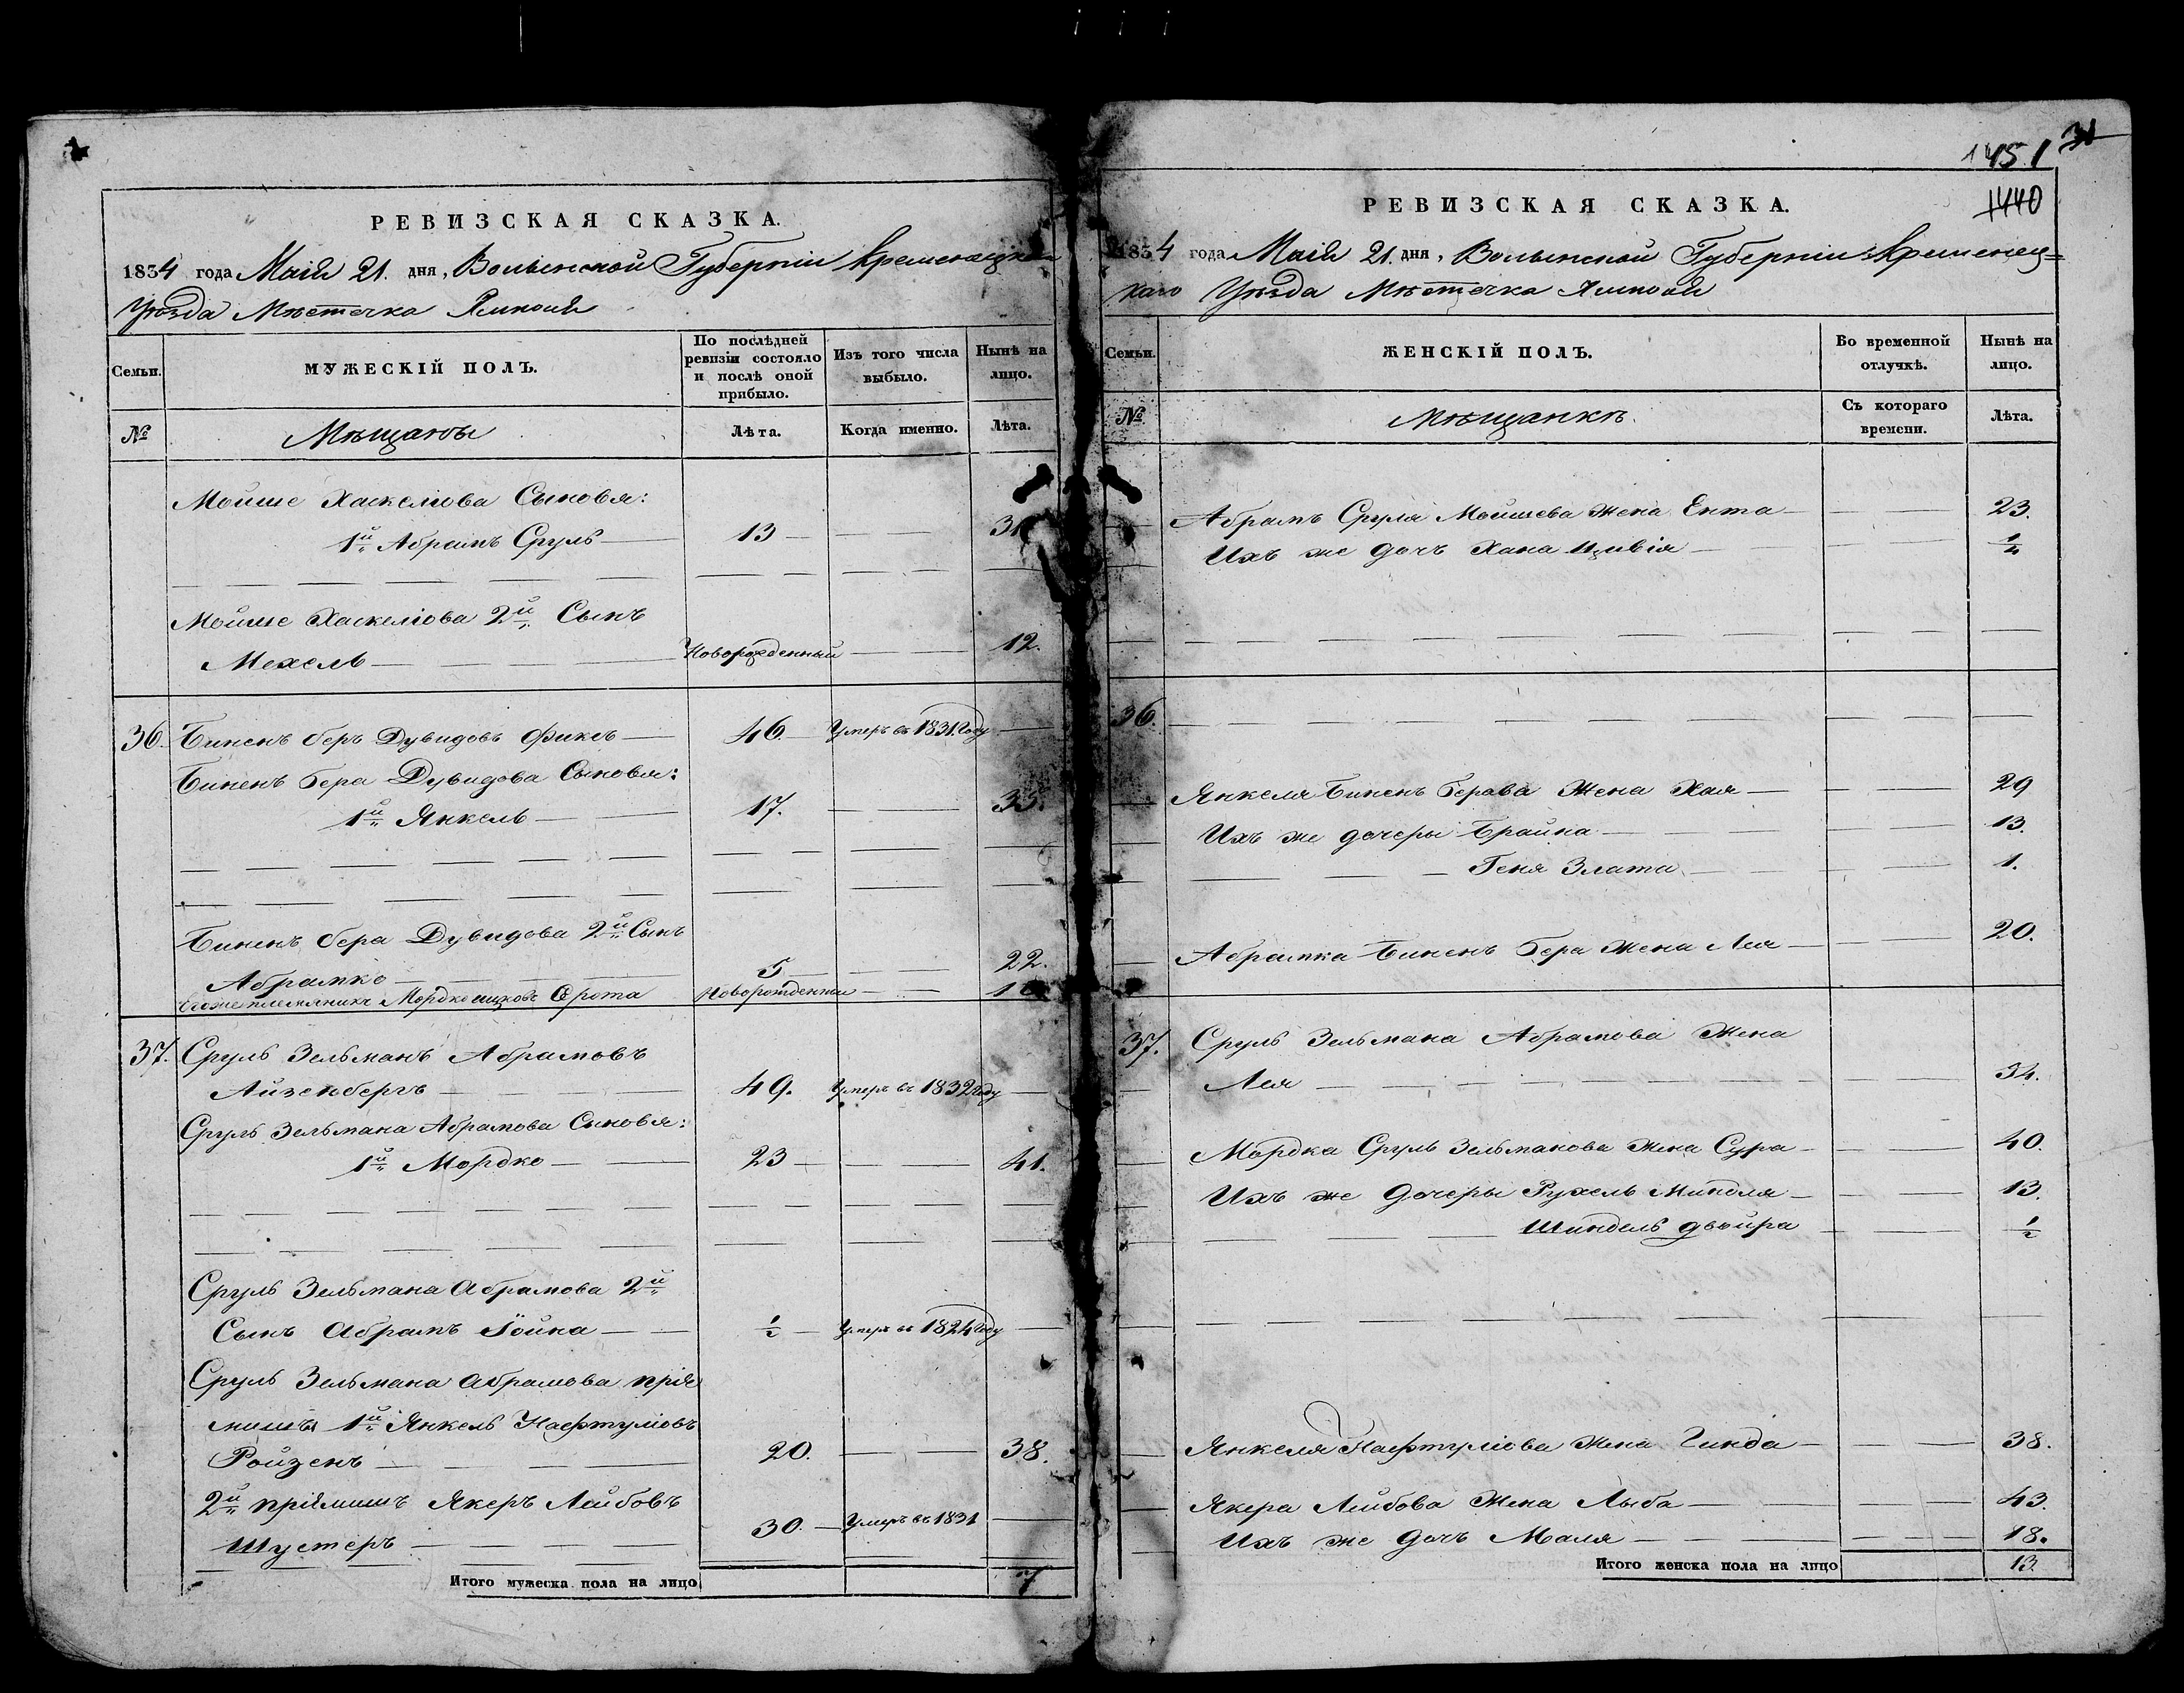 РЕВИЗСКАЯ СКАЗКА.
1834 года Маія 21. дня, Волынской Губерніи Кременецкаго
Уѣзда Мѣстечка Ямполя
Семьи.
МУЖЕСКІЙ ПОЛЪ.
По послѣдней ревизіи состояло и послѣ оной прибыло.
Изъ того числа выбыло.
Нынѣ на лицо.
№
Мѣщаны
Лѣта.
Когда именно.
Лѣта.
Мойше Хаскеліова Сыновья:
1й Абрамъ Сруль 13 31
Мойше Хаскеліова 2й Сынъ
Мехель Новорожденный 12.
36. Биненъ беръ Дувидовъ Фиксъ 46. Умеръ въ 1831 Году
Биненъ Бера Дувидова Сыновья:
1й Янкель 17. 35.
Биненъ бера Дувидова 2й Сынъ
Абрамко 5 22.
Егоже племянникъ Мордко Сирота Новорожденный
37. Сруль Зельманъ Абрамовъ
Айзенбергъ 49. Умеръ въ 1832 Году
Сруль Зельмана Абрамова Сыновья:
1й Мордко 23 41.
Сруль Зельмана Абрамова 2й
Сынъ Абрамъ Іойна ½ Умеръ въ 1824 Году
Сруль Зельмана Абрамова пріе
мыши 1й Янкель Нафтуліовъ
Ройзенъ 20. 38.
2й пріямишъ Якеръ Лейбовъ
Шустеръ 30. Умеръ въ 1831
Итого мужеска пола на лицо 7
1451 31
1440
РЕВИЗСКАЯ СКАЗКА.
1834 года Маія 21. дня, Волынской Губерніи Кременец=
каго Уѣзда Мѣстечка Ямполя
Семьи.
ЖЕНСКІЙ ПОЛЪ.
Во временной отлучкѣ.
Нынѣ на лицо.
№
Мѣщанкѣ.
Съ котораго времени.
Лѣта.
Абрамъ Сруля Мойшева Жена Ента 23.
Ихъ же дочъ Хана Цивія ½
36.
Янкеля Биненъ Берава Жена Хая 29
Ихъ же дочеры Брайна 13.
Геня Злата 1.
Абрамка Биненъ Бера Жена Лея 20.
37. Сруль Зельмана Абрамова Жена
Лея 34.
Мордка Сруль Зельманова Жена Сура 40.
Ихъ же дочеры Рухель Миндля 13.
Шиндель двойра ½
Янкеля Нафтуліова Жена Гинда 38.
Якера Лейбова Жена Лыба 43.
Ихъ же дочъ Маля 18.
Итого женска пола на лицо 13.